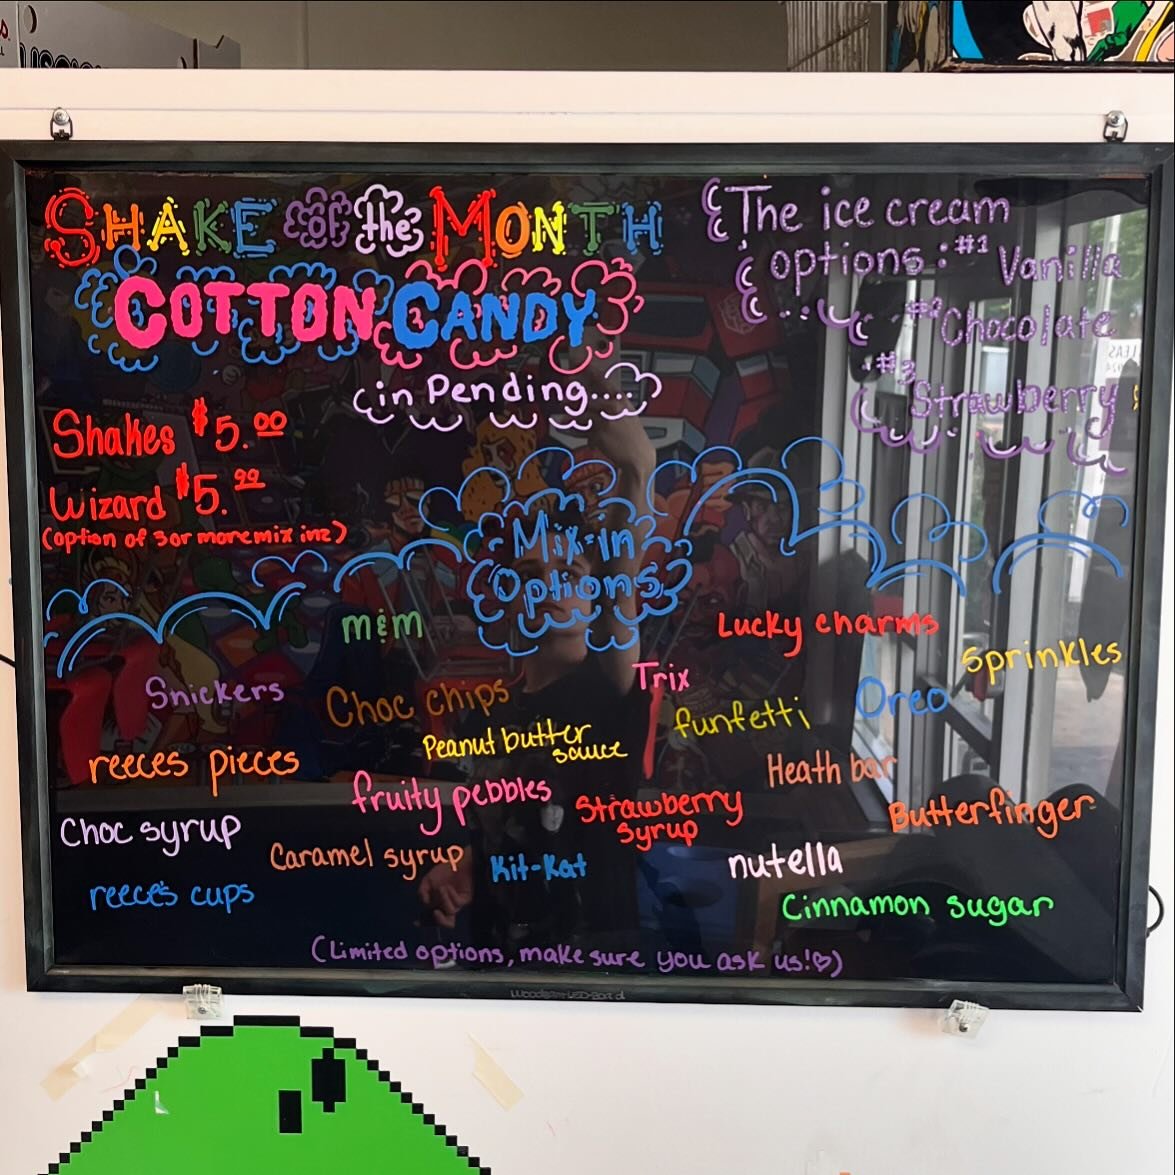 SHAKE of the MONTH
COTTON CANDY
in Pending....
The ice cream
options: #1 Vanilla
#2 Chocolate
#3 Strawberry
Shakes $5.00
Wizard $5.99
(option of 3 or more mix inz)
Mix-in
Options
m&m
Lucky charms
Sprinkles
Snickers
Choc chips
Trix
Oreo
funfetti
Peanut butter
sauce
reeces pieces
Heath bar
fruity pebbles
Strawberry
syrup
Butterfinger
Choc syrup
Caramel syrup
Kit-Kat
nutella
reece's cups
Cinnamon sugar
(Limited options, make sure you ask us!♡)